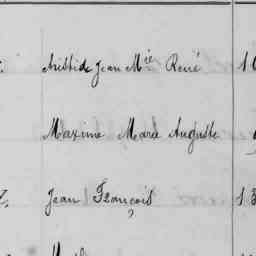 Aristide Jean Mie René
Maxime Marie Auguste
Jean François